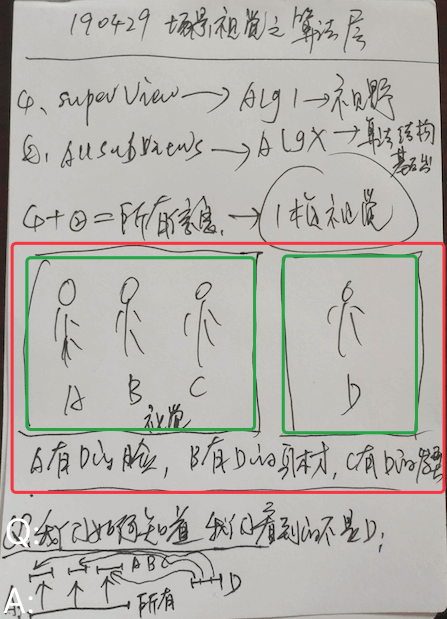 190429 场景视觉之算法层
①. superView → Alg1 → 视野
②. Allsubviews → ALgX → 算法结构
基石出
①+②=所有信息. → 1桢视觉
A B C D
视觉
A有D的脸, B有D的身材, C有D的发型
Q: 我们如何知道 我们看到的不是D;
A B C
D
A: 所有